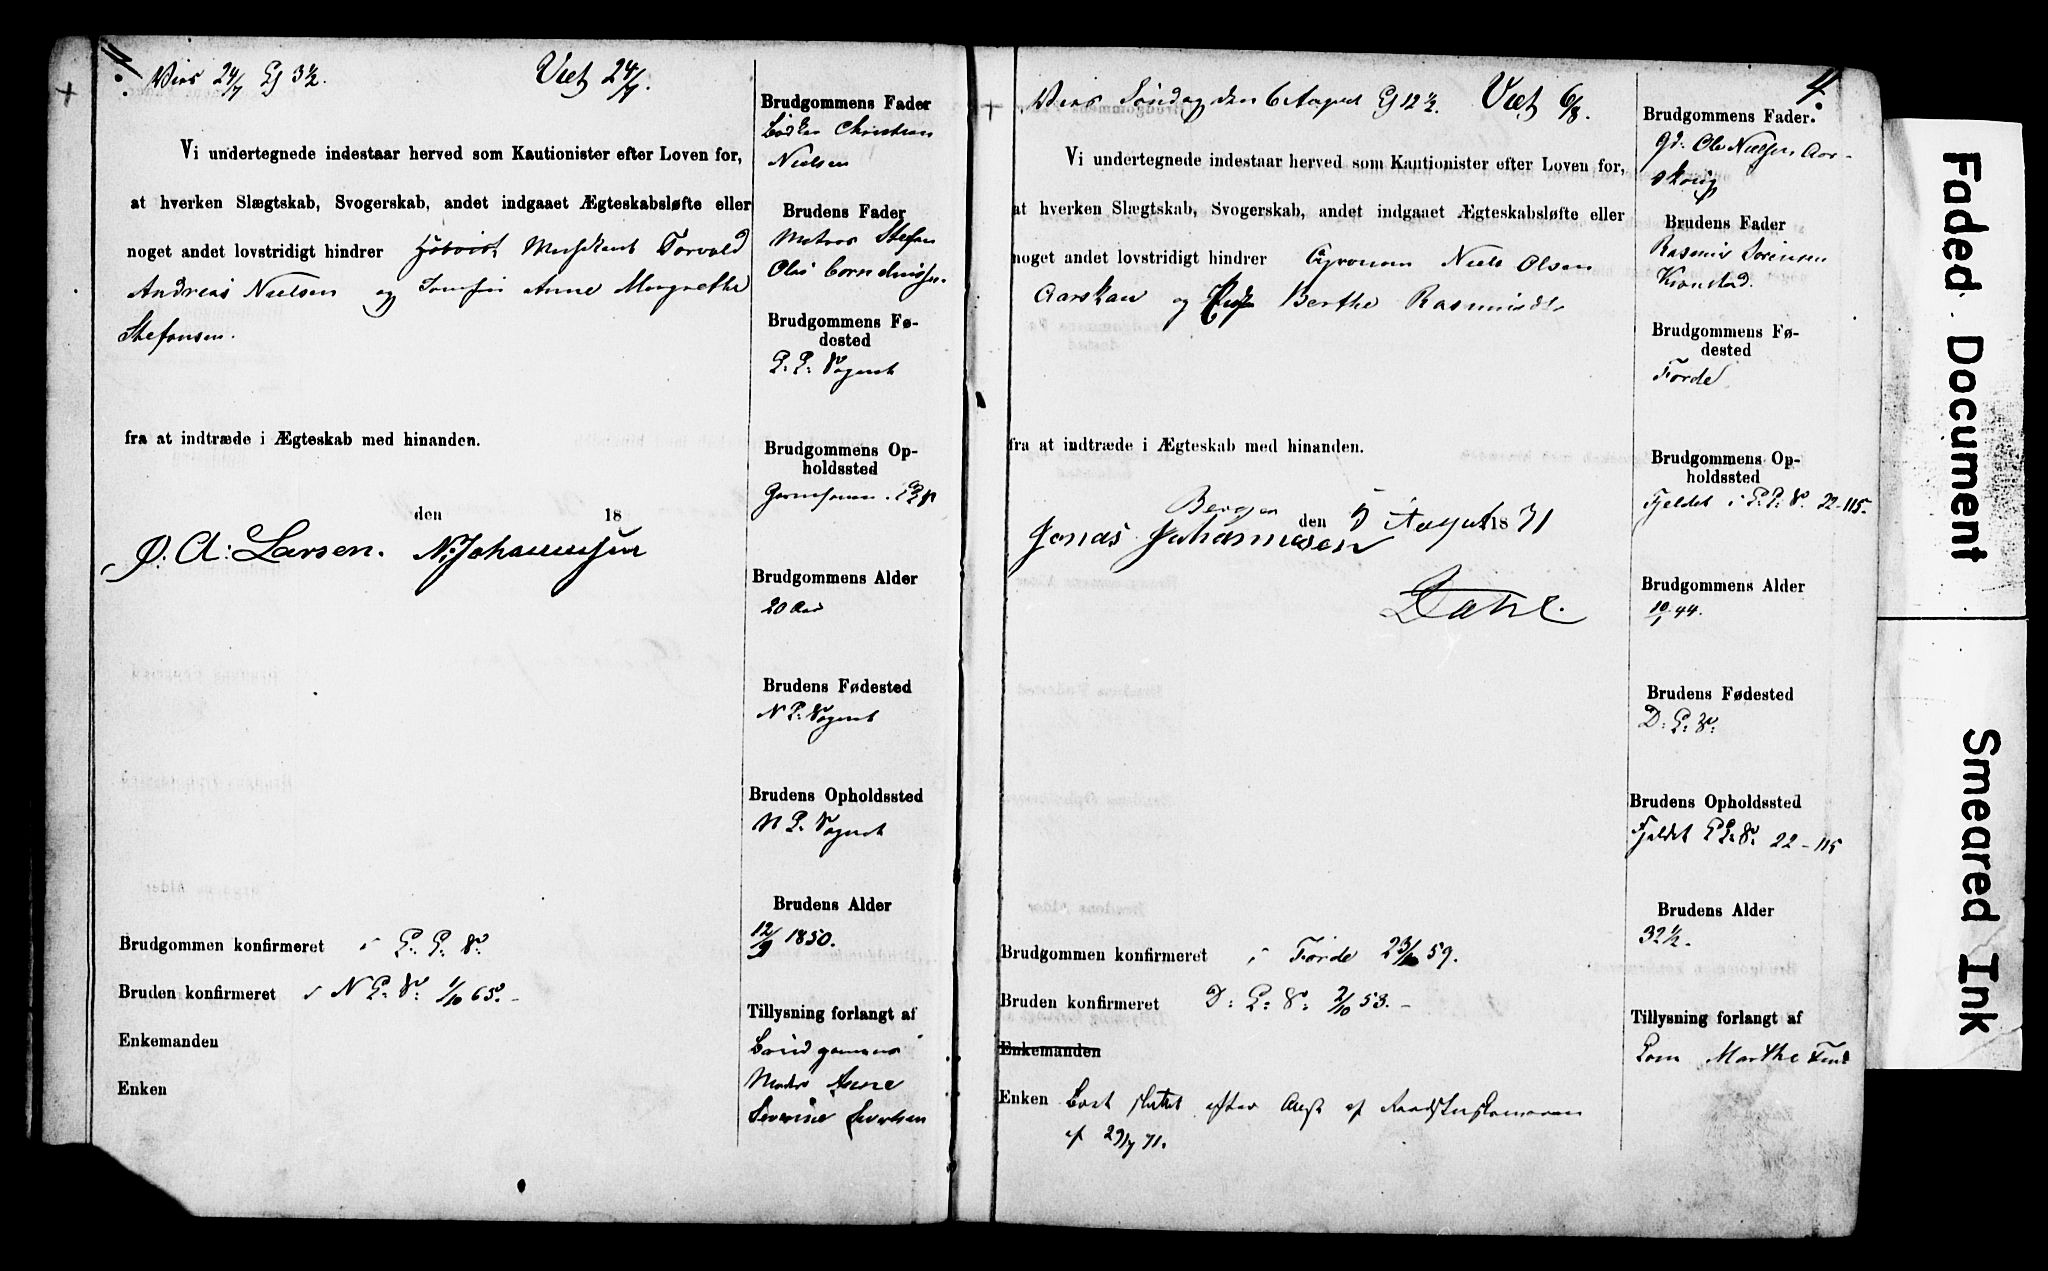 4.
Vies 24/7 Kl 3½.
Viet 24/7.
Vi undertegnede indestaar herved som Kautionister efter Loven for,
at hverken Slægtskab, Svogerskab, andet indgaaet Ægteskabsløfte eller
noget andet lovstridigt hindrer Musikant Torvald
Andreas Nielsen og Jomfru Anne Margrethe
Stefansen.
fra at indtræde i Ægteskab med hinanden.
den 18
O. A: Larsen. N. Johannessen
Brudgommen konfirmeret i
Bruden konfirmeret i N 1/10 65.
Enkemanden
Enken
Brudgommens Fader
Christian
Nielsen
Brudens Fader
Matros Stefan
Olai Corneliussen.
Brudgommens Fø-
desied
Sognet
Brudgommens Op-
holdssted
Brudgommens Alder
20 Aar
Brudens Fødested
N Sognet
Brudens Opholdssted
N Sognet
Brudens Alder
12/9 1850.
Tillysning forlangt af
Brudgommens
Moder Anne
Severine Sivertsen
4.
Vies Søndag den 6 August Kl 12½.
Viet 6/8.
Vi undertegnede indestaar herved som Kautionister efter Loven for,
at hverken Slægtskab, Svogerskab, andet indgaaet Ægteskabsløfte eller
noget andet lovstridigt hindrer Niels Olsen
Aarskau og Berthe Rasmusdtr
fra at indtræde i Ægteskab med hinanden.
Bergen den 5 August 18 71
Jonas Johannesen
Dahl.
Brudgommen konfirmeret i Førde 59.
Bruden konfirmeret D: 2/10 53.
Enkemanden
Enken Bort sluttet efter af
af 29/7 71.
Brudgommens Fader.
Gd: Ole Nielsen Aar-
Brudens Fader
Rasmus Sørensen
Kronstad.
Brudgommens Fø-
desied
Førde
Brudgommens Op-
holdssted
Fjeldet i 22-115.
Brudgommens Alder
10/1 44.
Brudens Fødested
D:
Brudens Opholdssted
Fjeldet 22-115
Brudens Alder
32½.
Tillysning forlangt af
Marthe
Faded Document
Smeared Ink